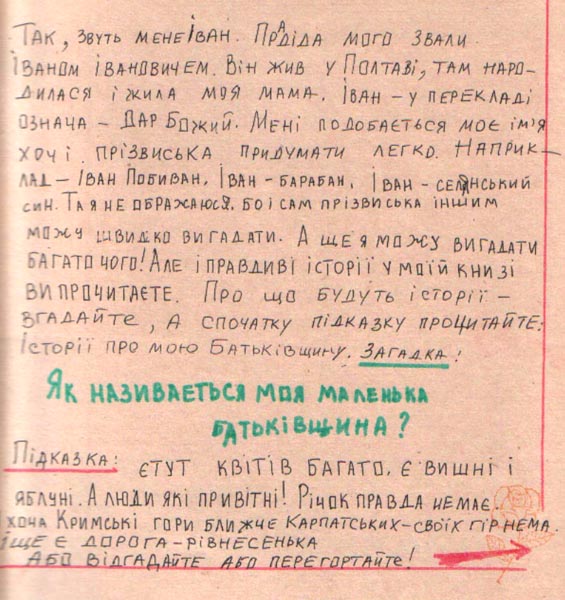 Так, звуть мене Іван. Прадіда мого звали
Іваном Івановичем. Він жив у Полтаві, там наро-
дилася і жила моя мама. Іван – у перекладі
означа – Дар Божий. Мені подобається моє ім'я
хоч і прізвиська придумати легко. Наприк-
лад – Іван Побиван, Іван – барабан, Іван – селянський
син. Та я не ображаюся. Бо і сам прізвиська іншим
можу швидко вигадати. А ще я можу вигадати
багато чого! Але і правдиві історії у моїй книзі
ви прочитаєте. Про що будуть історії –
вгадайте, а спочатку підказку процитайте:
історії про мою Батьківщину. Загадка!
Як називається моя маленька
батьківщина?
Підказка: є тут квітів багато. Є вишні і
яблуні. А люди які привітні! Річок правда немає
хоча Кримські гори ближче Карпатських – своїх гір нема.
іще є дорога – рівнесенька
Або відгадайте або перегортайте!